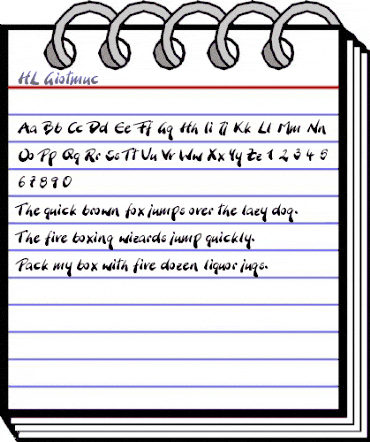 HL Giotmuc
Aa Bb Cc Dd Ee Ff Gg Hh Ii Jj Kk Ll Mm Nn
Oo Pp Qq Rr Ss Tt Uu Vv Ww Xx Yy Zz 1 2 3 4 5
6 7 8 9 0
The quick brown fox jumps over the lazy dog.
The five boxing wizards jump quickly.
Pack my box with five dozen liquor jugs.